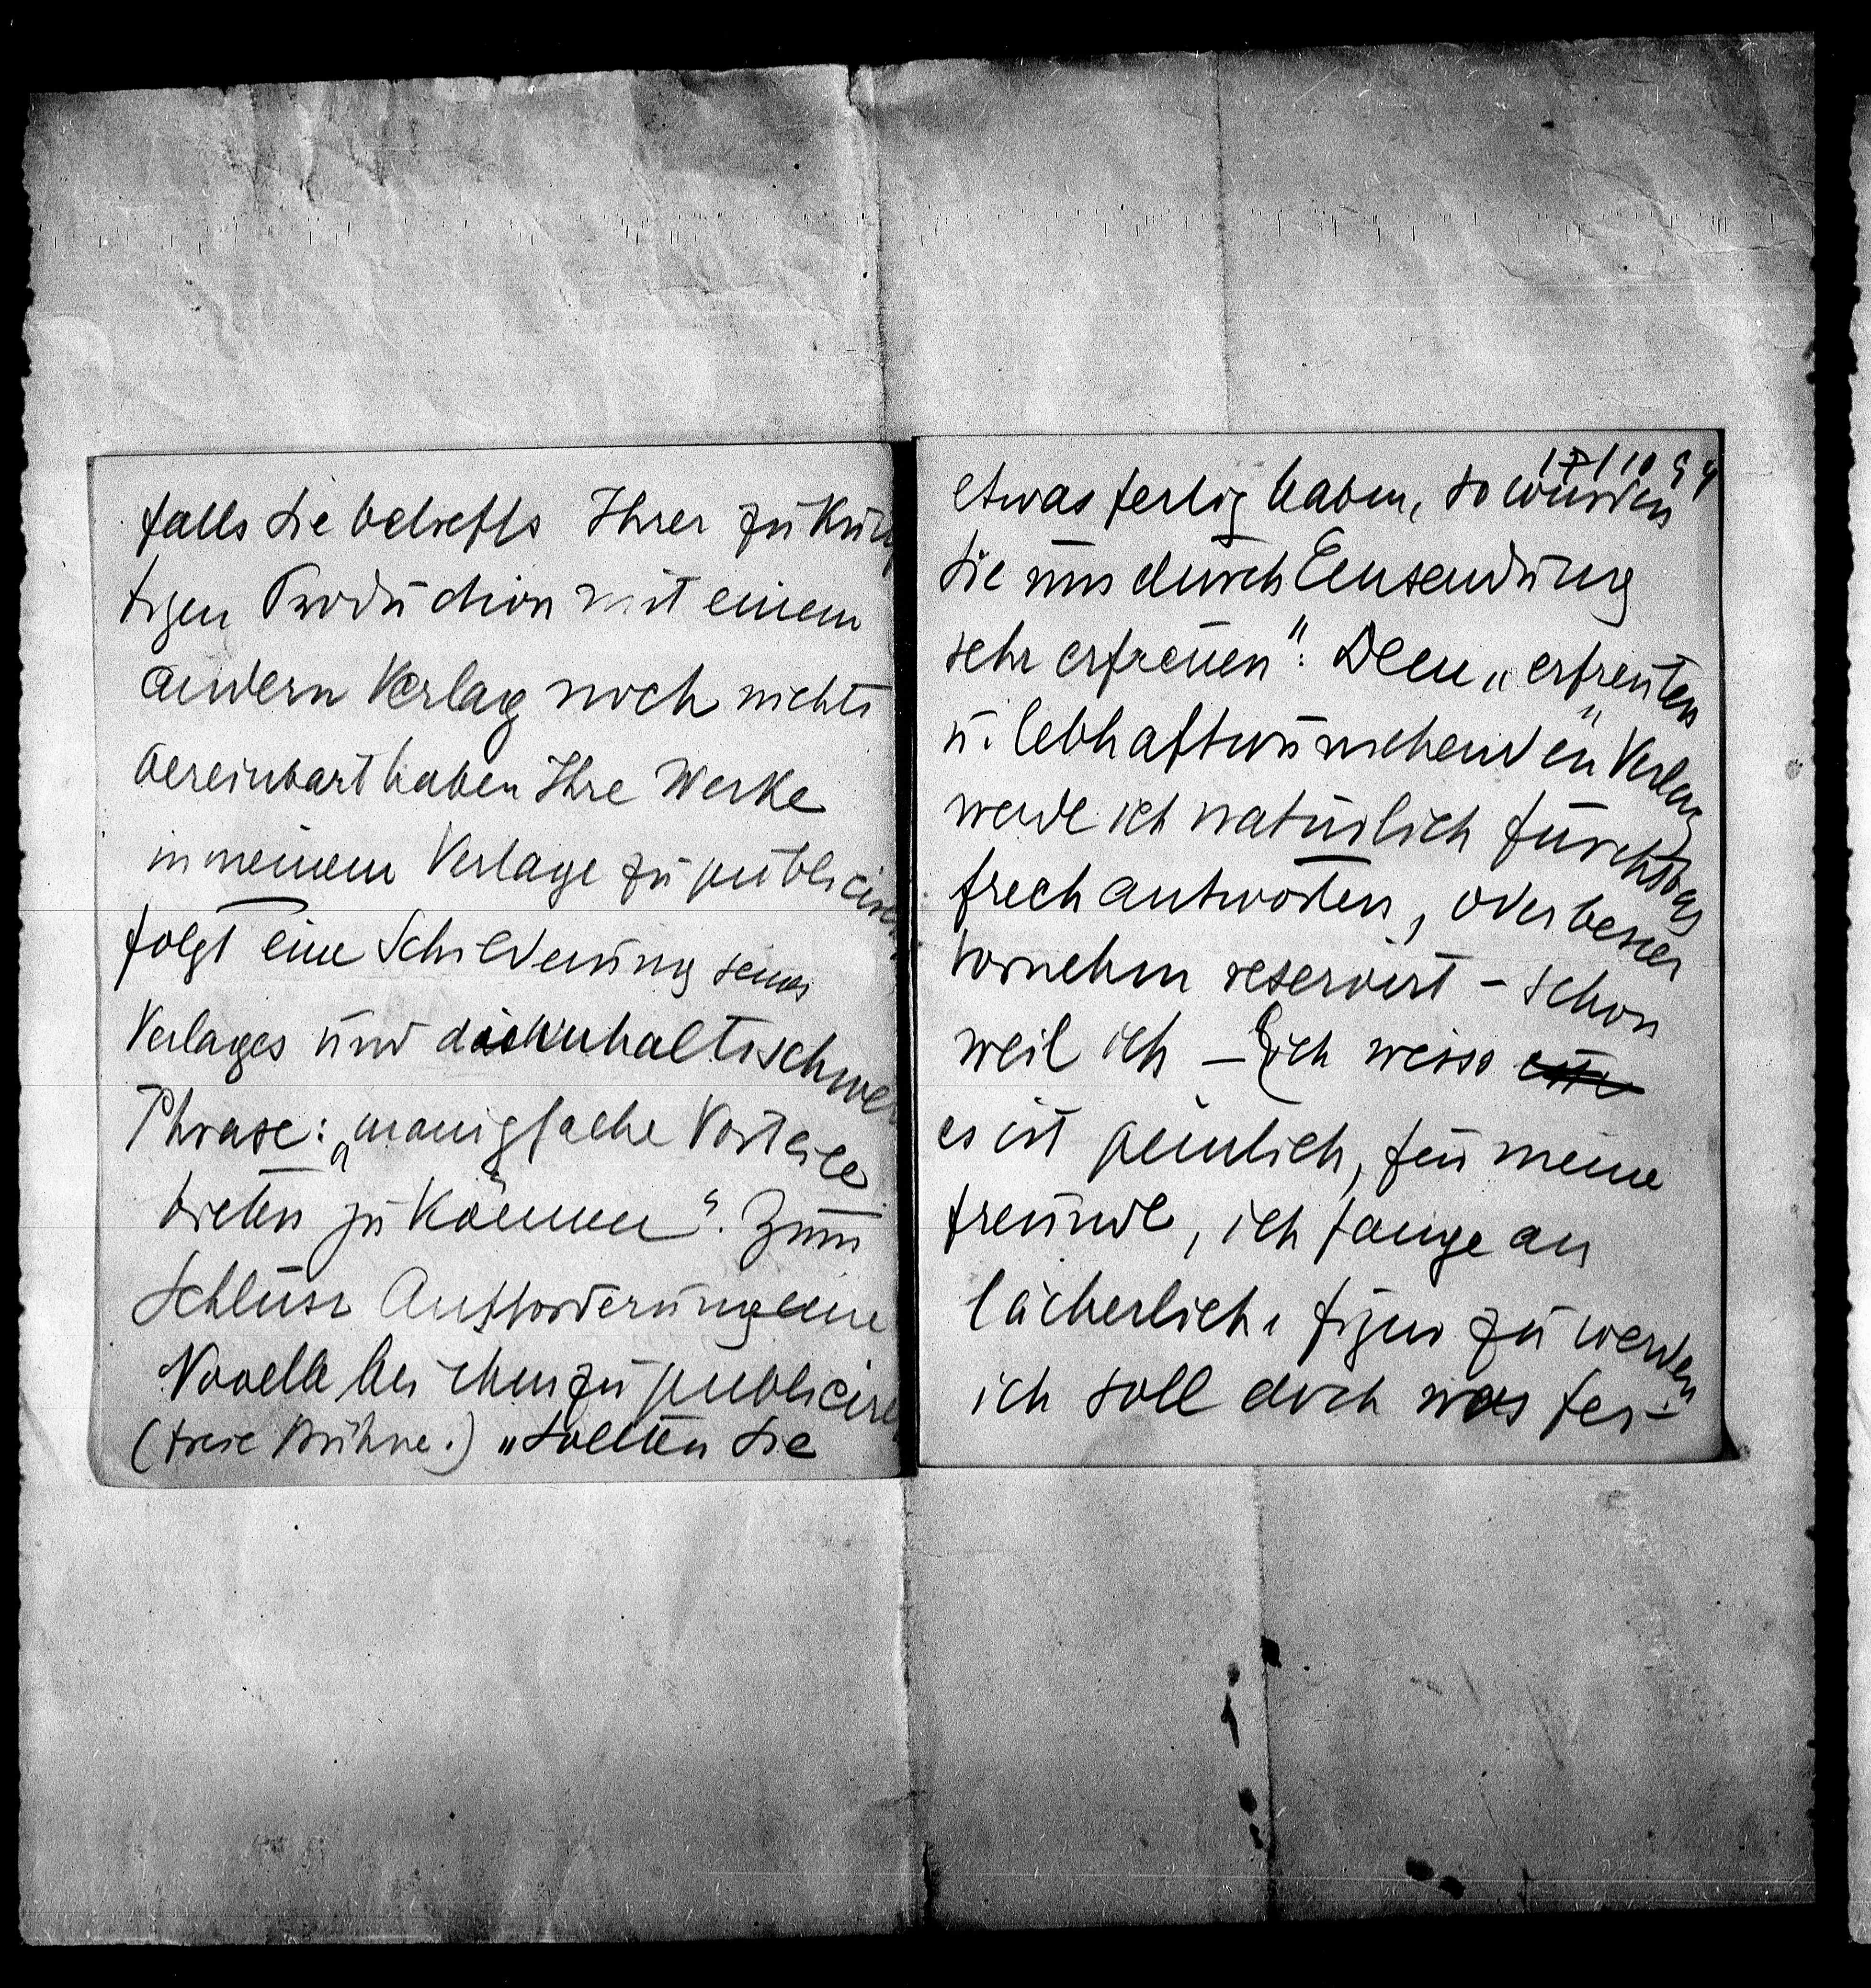 falls Sie betreffs Ihrer zukünf
tigen Production mit einem
andern Verlag noch nichts
vereinbart haben Ihre Werke
in meinem Verlage zu publiciren
folgt eine Schilderung seines
Verlages und die inhaltschwere
Phrase: „manigfache Vorteile
bieten zu können“. Zum
Schluss Aufforderung eine
Novelle bei ihm zu publiciren
(freie Bühne.) „Sollten Sie
17/10 94
etwas fertig haben, so würden
Sie uns durch Einsendung
sehr erfreuen“: Dem „erfreuten
u. lebhaft wünschenden“ Verlag
werde ich natürlich furchtbar
frech antworten, oder besser
vornehm reservirt – schon
weil ich – ich weiss
es ist peinlich, für meine
Freunde, ich fange an
lächerliche Figur zu werden
ich soll doch was fer-